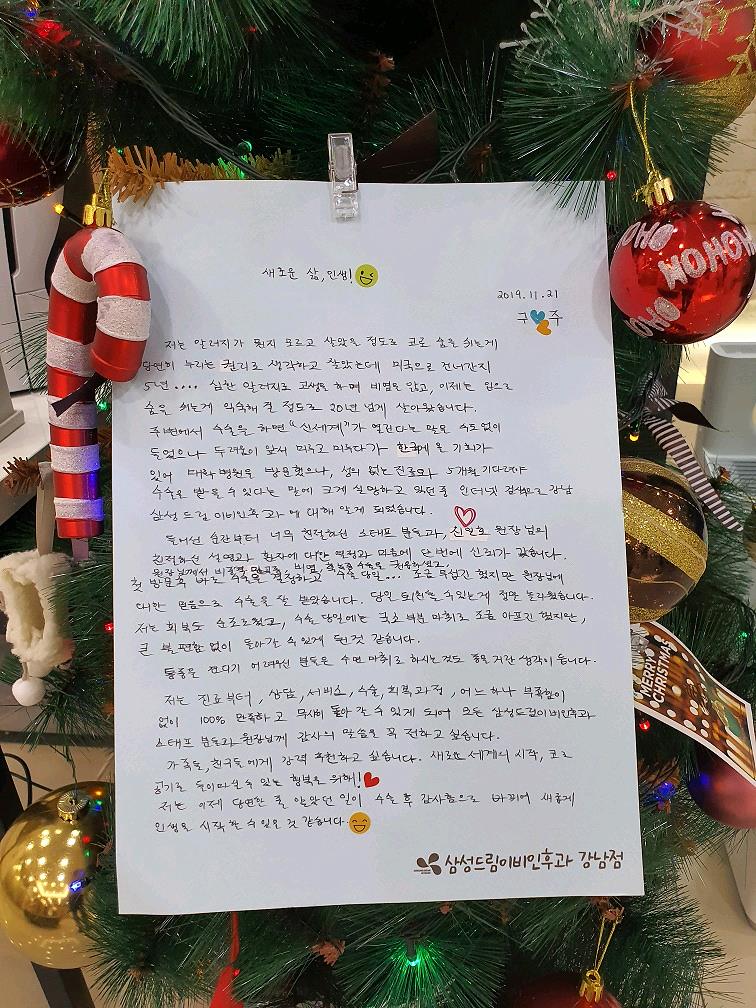 새로운 삶, 인생!
2019. 11. 21
구 주
저는 알러지가 뭔지 모르고 살았을 정도로 코로 숨을 쉬는게
당연히 누리는 권리로 생각하고 살았는데 미국으로 건너간지
5년.... 심한 알러지로 고생을 하며 비염을 앓고, 이제는 입으로
숨을 쉬는게 익숙해 질 정도로 20년 넘게 살아왔습니다.
주변에서 수술을 하면 "신세계"가 열린다는 말을 수도 없이
들었으나 두려움이 앞서 미루고 미루다가 한국에 올 기회가
있어 대학병원을 방문했으나, 성의 없는 진료와 5개월 기다려야
수술을 받을 수 있다는 말에 크게 실망하고 있던중 인터넷 검색으로 강남
삼성드림 이비인후과에 대해 알게 되었습니다.
들어선 순간부터 너무 친절하신 스태프 분들과, 원장님의
친절하신 설명과 환자에 대한 열정과 미소에 단번에 신뢰가 갔습니다.
원장님께서 비중격 만곡증, 비염, 수술을 권유하셨고,
첫 방문후 바로 수술을 결정하고 수술 당일... 조금 무섭긴 했지만 원장님에
대한 믿음으로 수술을 잘 받았습니다. 당일 퇴원할 수 있는게 정말 놀라웠습니다.
저는 회복도 순조로웠고, 수술 당일에는 국소 부분 마취로 조금 아프긴 했지만,
큰 불편함 없이 돌아갈 수 있게 된것 같습니다.
통증을 견디기 어려우신 분들은 수면 마취로 하시는것도 좋을 거란 생각이 듭니다.
저는 진료부터, 상담, 서비스, 수술, 회복과정, 어느 하나 부족함이
없이 100% 만족하고 무사히 돌아 갈 수 있게 되어 모든 삼성드림이비인후과
스태프 분들과 원장님께 감사의 말씀을 꼭 전하고 싶습니다.
가족들, 친구들에게 강력 추천하고 싶습니다. 새로운 세계의 시작, 코로
공기를 들이마실 수 있는 행복을 위해!
저는 이제 당연한 줄 알았던 일이 수술 후 감사함으로 바뀌어 새롭게
인생을 시작 할 수 있을 것 같습니다.
삼성드림이비인후과 강남점
HOHO
HOHOHO
HOHO
MERRY
CHRISTMAS